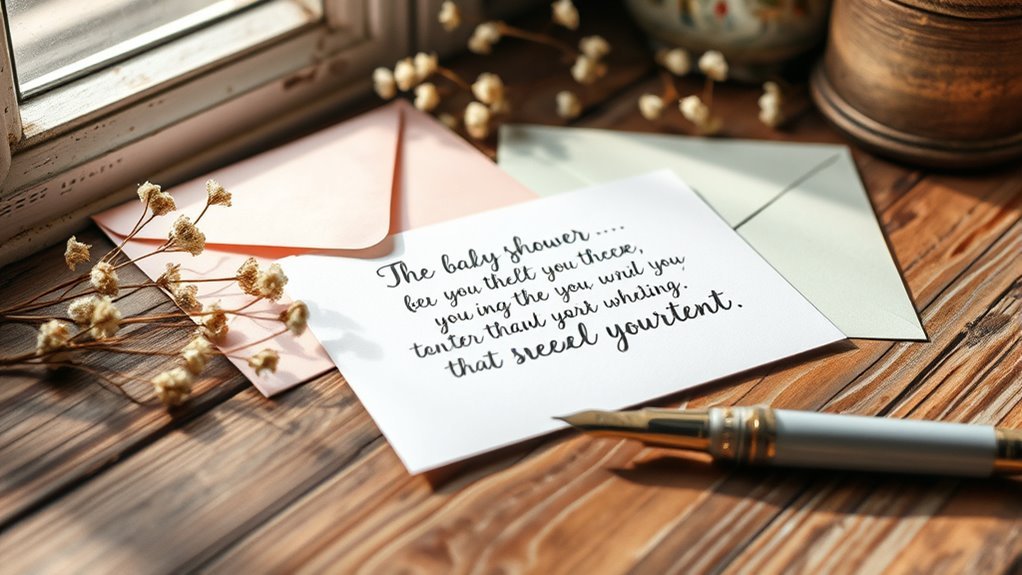 The baby shower ....
ber you thelt you thecre,
you ing the you wnil you
tenter thaul yort wheling.
that sreeel yourtent.